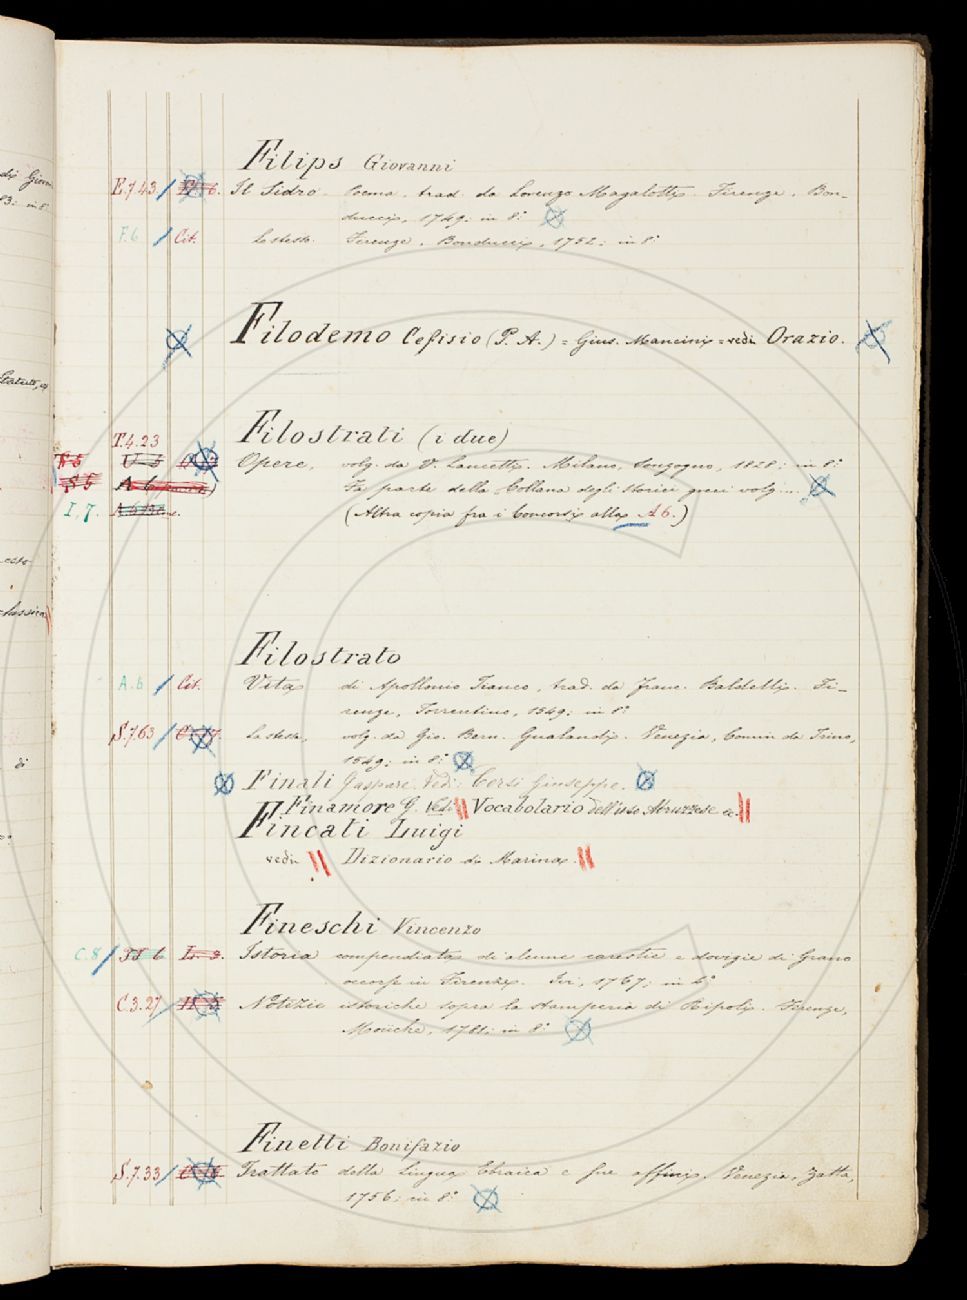 Filips Giovanni
E.7.43 Il Sidro. Poema. trad. da Lorenzo Magalotti. Firenze. Bon-
ducci, 1749; in 8°
F.6 Cit. Lo stesso. Firenze. Bonducci, 1752; in 8°
Filodemo Cefisio (P. A.) = Gius. Mancini = vedi Orazio.
Filostrati (i due)
T.4.23
Opere, volg. da V. Lancetti. Milano, Sonzogno, 1828; in 8°
Fa parte della Collana degli storici greci volg...
I, 7. (Altra copia fra i Concordi alla A 6.)
Filostrato
A.6 Cit. Vita di Apollonio Tianeo, trad. da Franc. Baldelli. Fi-
renze, Torrentino, 1549; in 8°
S.7.63 La stessa, volg. da Gio. Bern. Gualandi. Venezia, Comin da Trino,
1549; in 8°
Finali Gaspare. Vedi: Cersi Giuseppe.
Finamore G. Vedi Vocabolario dell'uso Abruzzese ec.
Fincati Luigi
vedi Dizionario di Marina.
Fineschi Vincenzo
C.8 Istoria compendiata di alcune carestie e dovizie di Grano
occorse in Firenze. Ivi, 1767; in 4°
C.3.27 Notizie istoriche sopra la stamperia di Ripoli. Firenze,
Moücke, 1781; in 8°
Finetti Bonifazio
S.7.33 Trattato della lingua Ebraica e sue affini. Venezia, Zatta,
1756; in 8°